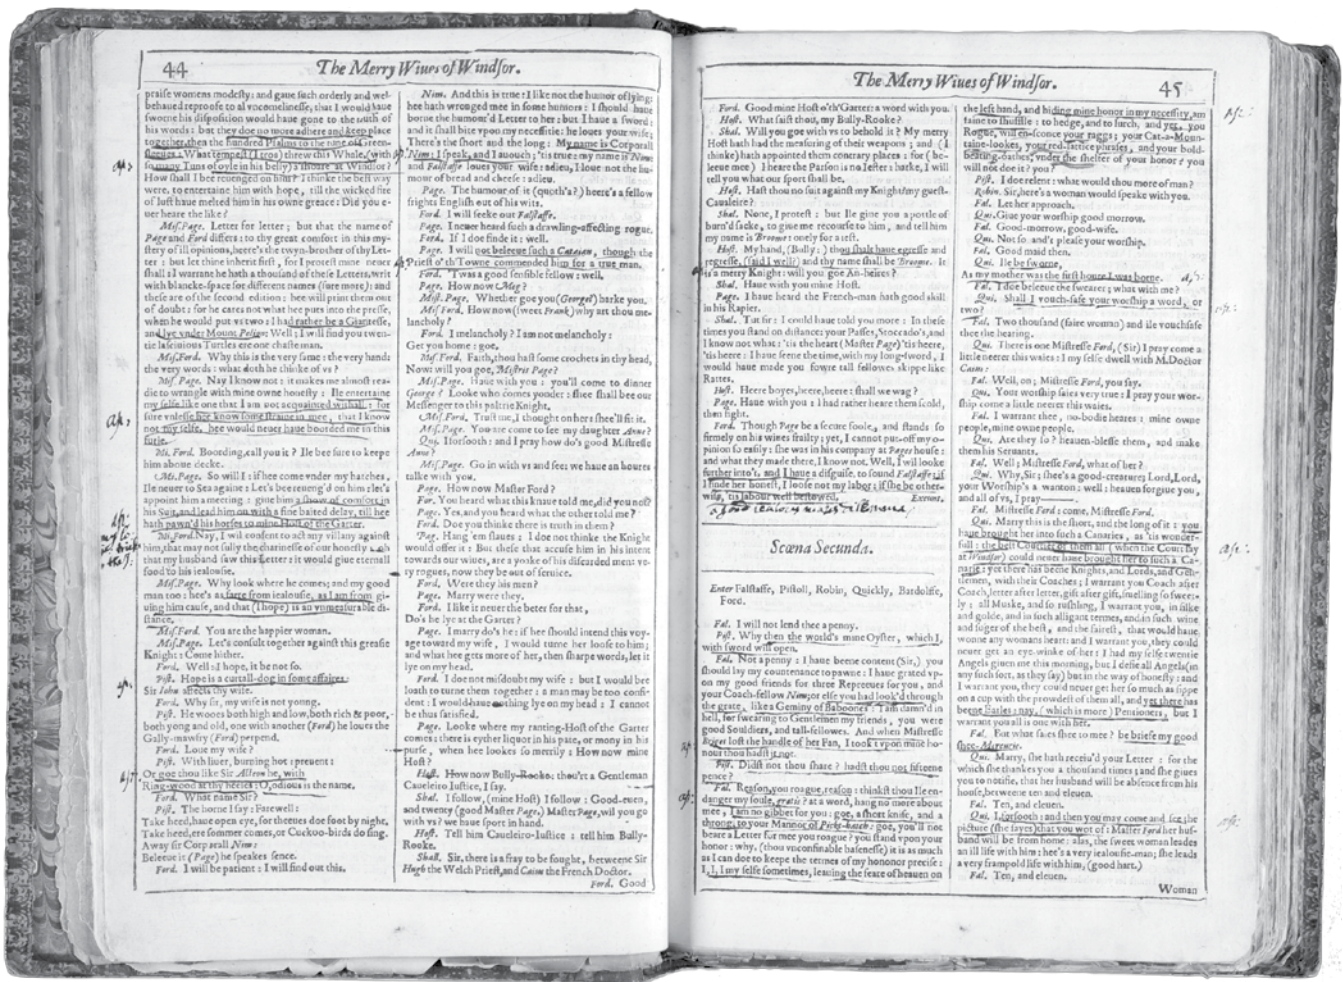 44
The Merry Wiues of Windsor.
praise womens modesty: and gaue such orderly and wel-
behaued reproofe to al vncomelinesse, that I would haue
sworne his disposition would haue gone to the truth of
his words: but they doe no more adhere and keep place
together, then the hundred Psalms to the tune of Green-
sleeues: What tempest (I troa) threw this Whale, (with
so many Tuns of oyle in his belly) a'shoare at Windsor?
How shall I bee reuenged on him? I thinke the best way
were, to entertaine him with hope, till the wicked fire
of lust haue melted him in his owne greace: Did you e-
uer heare the like?
Mis.Page. Letter for letter; but that the name of
Page and Ford differs: to thy great comfort in this my-
stery of ill opinions, heere's the twyn-brother of thy Let-
ter: but let thine inherit first, for I protest mine neuer
shall: I warrant he hath a thousand of these Letters, writ
with blancke-space for different names (sure more): and
these are of the second edition: hee will print them out
of doubt: for he cares not what hee puts into the presse,
when he would put vs two: I had rather be a Giantesse,
and lye vnder Mount Pelion: Well; I will find you twen-
tie lasciuious Turtles ere one chaste man.
Mis.Ford. Why this is the very same: the very hand:
the very words: what doth he thinke of vs?
Mis.Page. Nay I know not: it makes me almost rea-
die to wrangle with mine owne honesty: Ile entertaine
my selfe like one that I am not acquainted withall: for
sure vnlesse hee know some straine in mee, that I know
not my selfe, hee would neuer haue boorded me in this
furie.
Mi.Ford. Boording, call you it? Ile bee sure to keepe
him aboue decke.
Mi.Page. So will I: if hee come vnder my hatches,
Ile neuer to Sea againe: Let's bee reueng'd on him: let's
appoint him a meeting: giue him a show of comfort in
his Suit, and lead him on with a fine baited delay, till hee
hath pawn'd his horses to mine Host of the Garter.
Mi.Ford. Nay, I wil consent to act any villany against
him, that may not sully the charinesse of our honesty: oh
that my husband saw this Letter: it would giue eternall
food to his iealousie.
Mis.Page. Why look where he comes; and my good
man too: hee's as farre from iealousie, as I am from gi-
uing him cause, and that (I hope) is an vnmeasurable di-
stance.
Mis.Ford. You are the happier woman.
Mis.Page. Let's consult together against this greasie
Knight: Come hither.
Ford. Well: I hope, it be not so.
Pist. Hope is a curtall-dog in some affaires:
Sir Iohn affects thy wife.
Ford. Why sir, my wife is not young.
Pist. He wooes both high and low, both rich & poor,
both yong and old, one with another (Ford) he loues the
Gally-mawfry (Ford) perpend.
Ford. Loue my wife?
Pist. With liuer, burning hot: preuent:
Or goe thou like Sir Acteon he, with
Ring-wood at thy heeles: O, odious is the name.
Ford. What name Sir?
Pist. The horne I say: Farewell:
Take heed, haue open eye, for theeues doe foot by night.
Take heed, ere sommer comes, or Cuckoo-birds do sing.
Away sir Corporall Nim:
Beleeue it (Page) he speakes sence.
Ford. I will be patient: I will find out this.
Nim. And this is true: I like not the humor of lying:
hee hath wronged mee in some humors: I should haue
borne the humour'd Letter to her: but I haue a sword:
and it shall bite vpon my necessitie: he loues your wife;
There's the short and the long: My name is Corporall
Nim: I speak, and I auouch; 'tis true: my name is Nim:
and Falstaffe loues your wife: adieu, I loue not the hu-
mour of bread and cheese: adieu.
Page. The humour of it (quoth'a?) heere's a fellow
frights English out of his wits.
Ford. I will seeke out Falstaffe.
Page. I neuer heard such a drawling-affecting rogue.
Ford. If I doe finde it: well.
Page. I will not beleeue such a Cataian, though the
Priest o'th'Towne commended him for a true man.
Ford. 'Twas a good sensible fellow: well.
Page. How now Meg?
Mist.Page. Whether goe you (George?) harke you.
Mis.Ford. How now (sweet Frank) why art thou me-
lancholy?
Ford. I melancholy? I am not melancholy:
Get you home: goe.
Mis.Ford. Faith, thou hast some crochets in thy head,
Now: will you goe, Mistris Page?
Mis.Page. Haue with you: you'll come to dinner
George? Looke who comes yonder: shee shall bee our
Messenger to this paltrie Knight.
Mis.Ford. Trust me, I thought on her: shee'll fit it.
Mis.Page. You are come to see my daughter Anne?
Qui. I forsooth: and I pray how do's good Mistresse
Anne?
Mis.Page. Go in with vs and see: we haue an houres
talke with you.
Page. How now Master Ford?
For. You heard what this knaue told me, did you not?
Page. Yes, and you heard what the other told me?
Ford. Doe you thinke there is truth in them?
Pag. Hang 'em slaues: I doe not thinke the Knight
would offer it: But these that accuse him in his intent
towards our wiues, are a yoake of his discarded men: ve-
ry rogues, now they be out of seruice.
Ford. Were they his men?
Page. Marry were they.
Ford. I like it neuer the beter for that,
Do's he lye at the Garter?
Page. I marry do's he: if hee should intend this voy-
age toward my wife, I would turne her loose to him;
and what hee gets more of her, then sharpe words, let it
lye on my head.
Ford. I doe not misdoubt my wife: but I would bee
loath to turne them together: a man may be too confi-
dent: I would haue nothing lye on my head: I cannot
be thus satisfied.
Page. Looke where my ranting-Host of the Garter
comes: there is eyther liquor in his pate, or mony in his
purse, when hee lookes so merrily: How now mine
Host?
Host. How now Bully-Rooke: thou'rt a Gentleman
Caueleiro Iustice, I say.
Shal. I follow, (mine Host) I follow: Good-euen,
and twenty (good Master Page.) Master Page, wil you go
with vs? we haue sport in hand.
Host. Tell him Caueleiro-Iustice: tell him Bully-
Rooke.
Shall. Sir, there is a fray to be fought, betweene Sir
Hugh the Welch Priest, and Caius the French Doctor.
Ford. Good
The Merry Wiues of Windsor.
45
Ford. Good mine Host o'th'Garter: a word with you.
Host. What saist thou, my Bully-Rooke?
Shal. Will you goe with vs to behold it? My merry
Host hath had the measuring of their weapons; and (I
thinke) hath appointed them contrary places: for (be-
leeue mee) I heare the Parson is no Iester: harke, I will
tell you what our sport shall be.
Host. Hast thou no suit against my Knight? my guest-
Caualeire?
Shal. None, I protest: but Ile giue you a pottle of
burn'd sacke, to giue me recourse to him, and tell him
my name is Broome: onely for a iest.
Host. My hand, (Bully:) thou shalt haue egresse and
regresse, (said I well?) and thy name shall be Broome. It
is a merry Knight: will you goe An-heires?
Shal. Haue with you mine Host.
Page. I haue heard the French-man hath good skill
in his Rapier.
Shal. Tut sir: I could haue told you more: In these
times you stand on distance: your Passes, Stoccado's, and
I know not what: 'tis the heart (Master Page) 'tis heere,
'tis heere: I haue seene the time, with my long-sword, I
would haue made you fowre tall fellowes skippe like
Rattes.
Host. Heere boyes, heere, heere: shall we wag?
Page. Haue with you: I had rather heare them scold,
then fight.
Ford. Though Page be a secure foole, and stands so
firmely on his wiues frailty; yet, I cannot put-off my o-
pinion so easily: she was in his company at Pages house:
and what they made there, I know not. Well, I wil looke
further into't, and I haue a disguise, to sound Falstaffe; if
I finde her honest, I loose not my labor: if she be other-
wise, 'tis labour well bestowed. Exeunt.
Scœna Secunda.
Enter Falstaffe, Pistoll, Robin, Quickly, Bardolffe,
Ford.
Fal. I will not lend thee a penny.
Pist. Why then the world's mine Oyster, which I,
with sword will open.
Fal. Not a penny: I haue beene content (Sir,) you
should lay my countenance to pawne: I haue grated vp-
on my good friends for three Repreeues for you, and
your Coach-fellow Nim; or else you had look'd through
the grate, like a Geminy of Baboones: I am damn'd in
hell, for swearing to Gentlemen my friends, you were
good Souldiers, and tall-fellowes. And when Mistresse
Briget lost the handle of her Fan, I took't vpon mine ho-
nour thou hadst it not.
Pist. Didst not thou share? hadst thou not fifteene
pence?
Fal. Reason, you roague, reason: thinkst thou Ile en-
danger my soule, gratis? at a word, hang no more about
mee, I am no gibbet for you: goe, a short knife, and a
throng, to your Mannor of Pickt-hatch: goe, you'll not
beare a Letter for mee you roague? you stand vpon your
honor: why, (thou vnconfinable basenesse) it is as much
as I can doe to keepe the termes of my hononor precise:
I, I, I my selfe sometimes, leauing the feare of heauen on
the left hand, and hiding mine honor in my necessity, am
faine to shuffle: to hedge, and to lurch, and yet, you
Rogue, will en-sconce your raggs; your Cat-a-Moun-
taine-lookes, your red-lattice phrases, and your bold-
beating-oathes, vnder the shelter of your honor? you
will not doe it? you?
Pist. I doe relent: what would thou more of man?
Robin. Sir, here's a woman would speake with you.
Fal. Let her approach.
Qui. Giue your worship good morrow.
Fal. Good-morrow, good-wife.
Qui. Not so, and't please your worship.
Fal. Good maid then.
Qui. Ile be sworne,
As my mother was the first houre I was borne.
Fal. I doe beleeue the swearer; what with me?
Qui. Shall I vouch-safe your worship a word, or
two?
Fal. Two thousand (faire woman) and ile vouchsafe
thee the hearing.
Qui. There is one Mistresse Ford, (Sir) I pray come a
little neerer this waies: I my selfe dwell with M. Doctor
Caius:
Fal. Well, on; Mistresse Ford, you say.
Qui. Your worship saies very true: I pray your wor-
ship come a little neerer this waies.
Fal. I warrant thee, no-bodie heares: mine owne
people, mine owne people.
Qui. Are they so? heauen-blesse them, and make
them his Seruants.
Fal. Well; Mistresse Ford, what of her?
Qui. Why, Sir; shee's a good-creature; Lord, Lord,
your Worship's a wanton: well: heauen forgiue you,
and all of vs, I pray——.
Fal. Mistresse Ford: come, Mistresse Ford.
Qui. Marry this is the short, and the long of it: you
haue brought her into such a Canaries, as 'tis wonder-
full: the best Courtier of them all (when the Court lay
at Windsor) could neuer haue brought her to such a Ca-
narie: yet there has beene Knights, and Lords, and Gen-
tlemen, with their Coaches; I warrant you Coach after
Coach, letter after letter, gift after gift, smelling so sweet-
ly; all Muske, and so rushling, I warrant you, in silke
and golde, and in such alligant termes, and in such wine
and suger of the best, and the fairest, that would haue
wonne any womans heart: and I warrant you, they could
neuer get an eye-winke of her: I had my selfe twentie
Angels giuen me this morning, but I defie all Angels (in
any such sort, as they say) but in the way of honesty: and
I warrant you, they could neuer get her so much as sippe
on a cup with the prowdest of them all, and yet there has
beene Earles: nay, (which is more) Pentioners, but I
warrant you all is one with her.
Fal. But what saies shee to mee? be briefe my good
shee-Mercurie.
Qui. Marry, she hath receiu'd your Letter: for the
which she thankes you a thousand times; and she giues
you to notifie, that her husband will be absence from his
house, betweene ten and eleuen.
Fal. Ten, and eleuen.
Qui. I, forsooth: and then you may come and see the
picture (she sayes) that you wot of: Master Ford her hus-
band will be from home: alas, the sweet woman leades
an ill life with him: hee's a very iealousie-man; she leads
a very frampold life with him, (good hart.)
Fal. Ten, and eleuen.
Woman